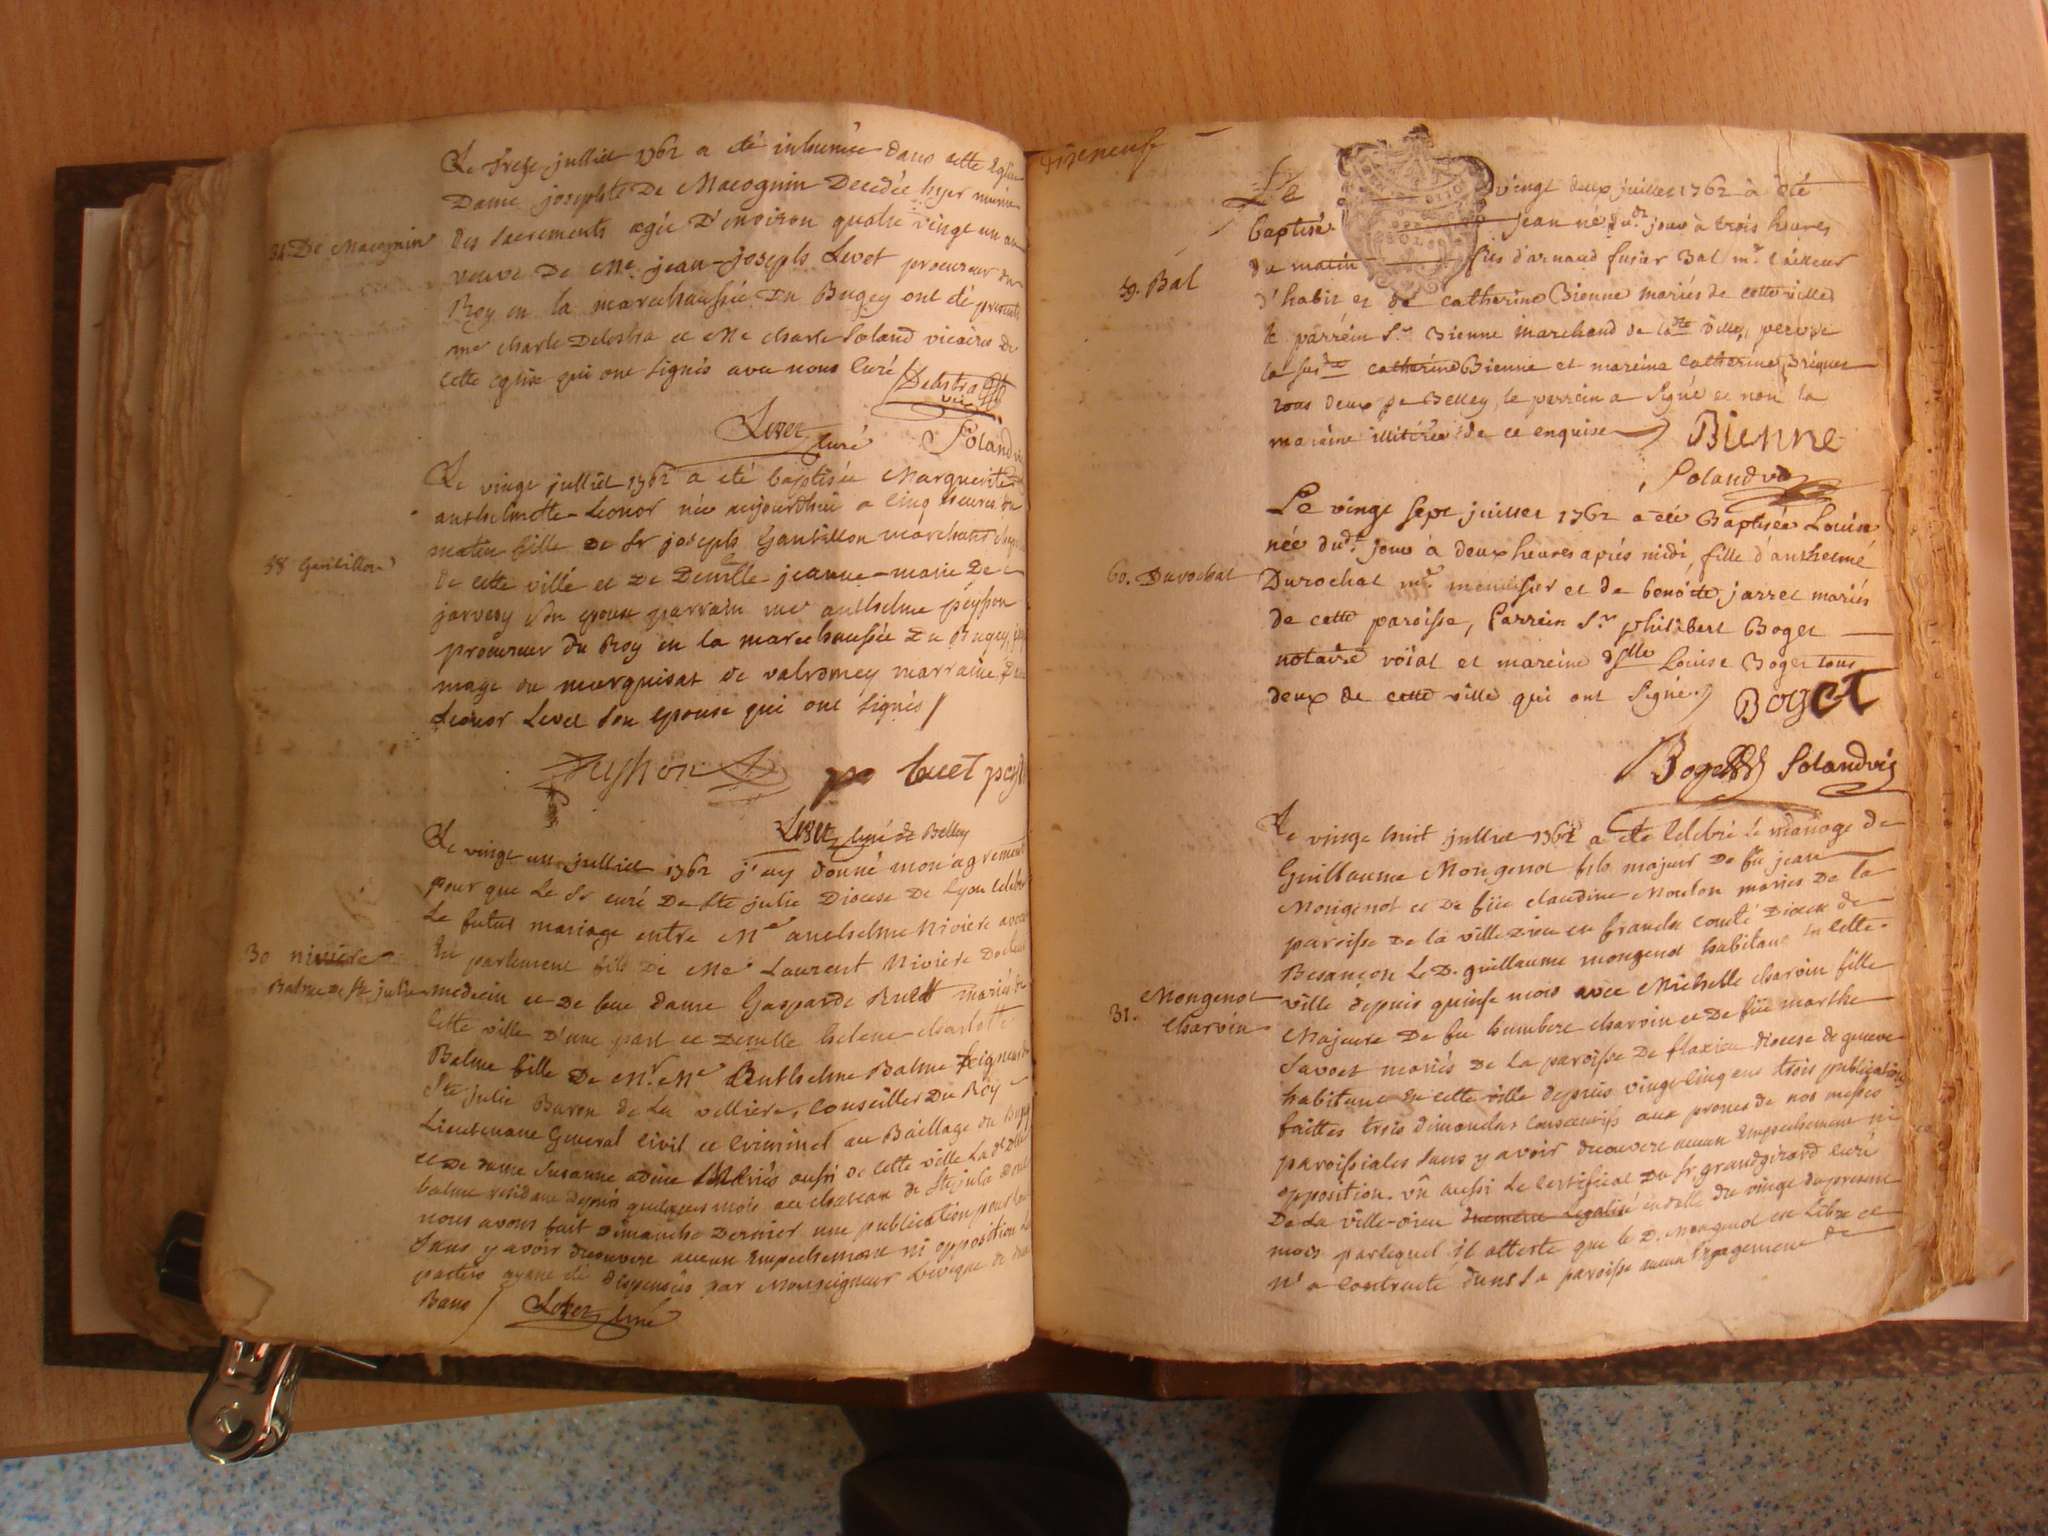 Le treize julliet 1762 a été inhumée dans cette Eglise
Dame josephte De Macognin Decedée hyer munie
des sacrements agée D'environ quatre vingt un an
veuve De Me jean-joseph Levet procureur du
Roy en la marechaussée Du Bugey ont été presents
me charle Delostra et Me charle Soland vicaires de
cette eglise qui ont signés avec nous Curé
Delostra
vic
Levet curé
Soland
De Macognin
Le vingt julliet 1762 a été baptisée Marguerite
anthelmette-Leonor née aujourdhui a cinq heures du
matin fille de Sr joseph Gantillon marchand
de cette ville et de Demlle jeanne-marie De
son epouse parrain me anthelme peysson
procureur du Roy en la marechaussée du Bugey
mage du marquisat de valromey marraine
Leonor Levet son epouse qui ont signés
58 Gantillon
Peysson
Levet curé de Belley
Le vingt un julliet 1762 j'ay donné mon agrement
pour que Le Sr curé De Ste julie Diocese De Lyon celebre
Le futur mariage entre Me anthelme Niviere avocat
En parlement fils de Me Laurent Niviere Docteur
medecin et De feue dame Gasparde mariés de
Cette ville D'une part et Demlle helene-charlotte
Balme fille De Mr. Me Anthelme Balme seigneur
Ste julie Baron de La velliere, Conseiller Du Roy
Lieutenant General Civil et Criminel au Baillage du Bugey
et De dame Susanne mariés aussi de cette ville La de Dlle
balme residant depuis quelques mois au chateau de Ste julie dont
nous avons fait Dimanche Dernier une publication
sans y avoir decouvert aucun Empechement ni opposition
parties ayant été dispensées par Monseigneur L'éveque de deux
Bans
Levet curé
30 niviere
Balme de Ste julie
Le vingt deux juillet 1762 à été
baptisé jean né dudt jour à trois heures
du matin fils d'arnaud fusier Bal mre tailleur
d'habit et de catherine Bienne mariés de cette ville
le parrein Sr Bienne marchand de ville, pere de
la susdte catherine Bienne et mareine catherine
tous deux de Belley, le parrein a signé et non la
mareine illitérée de ce enquise
59. Bal
Bienne
Soland vic
Le vingt sept juillet 1762 a été Baptisée Louise
née dudt jour à deux heures aprés midi, fille d'anthelme
Durochat mre menusier et de benoite jarret mariés
de cette paroisse, Parrein Sr philibert Boget
notaire roïal et mareine dlle Louise Boget tous
deux de cette ville qui ont signé.
60. Durochat
Boget
Boget Soland vic
Le vingt huit julliet 1762 a été Celebré le mariage de
Guillaume Mongenot fils majeur De fû jean
Mongenot et De fûe claudine Mouton mariés De la
paroisse De la ville Dieu en franche comté Diocese De
Besançon Le D. guillaume mongenot habitant en cette
ville depuis quinse mois avec Michelle charvin fille
Majeure De fu humbert charvin et De fûe marthe
Mongenot
31. charvin
mariés De la paroisse De flaxieu diocese de geneve
habitant En cette ville depuis vingt cinq ans trois publications
faittes trois dimanches Consecutifs aux prones de nos messes
paroissiales sans y avoir decouvert aucun Empechement ni
opposition. vû aussi Le Certificat Du Sr grandgirard Curé
De La ville-dieu duement Legalisé du vingt du present
mois par lequel il atteste que le D. Mongenot est Libre et
n'a contracté dans sa paroisse aucun Engagement de